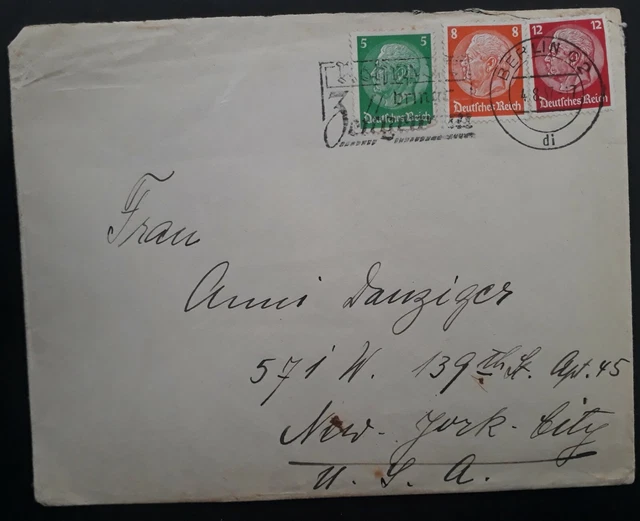 5 5 8 8 12 12
Deutsches Reich Deutsches Reich Deutsches Reich
BERLIN C2
di
Frau
Anni Danziger
571 W. 139th St. Apt. 45
New-York-City
U.S.A.